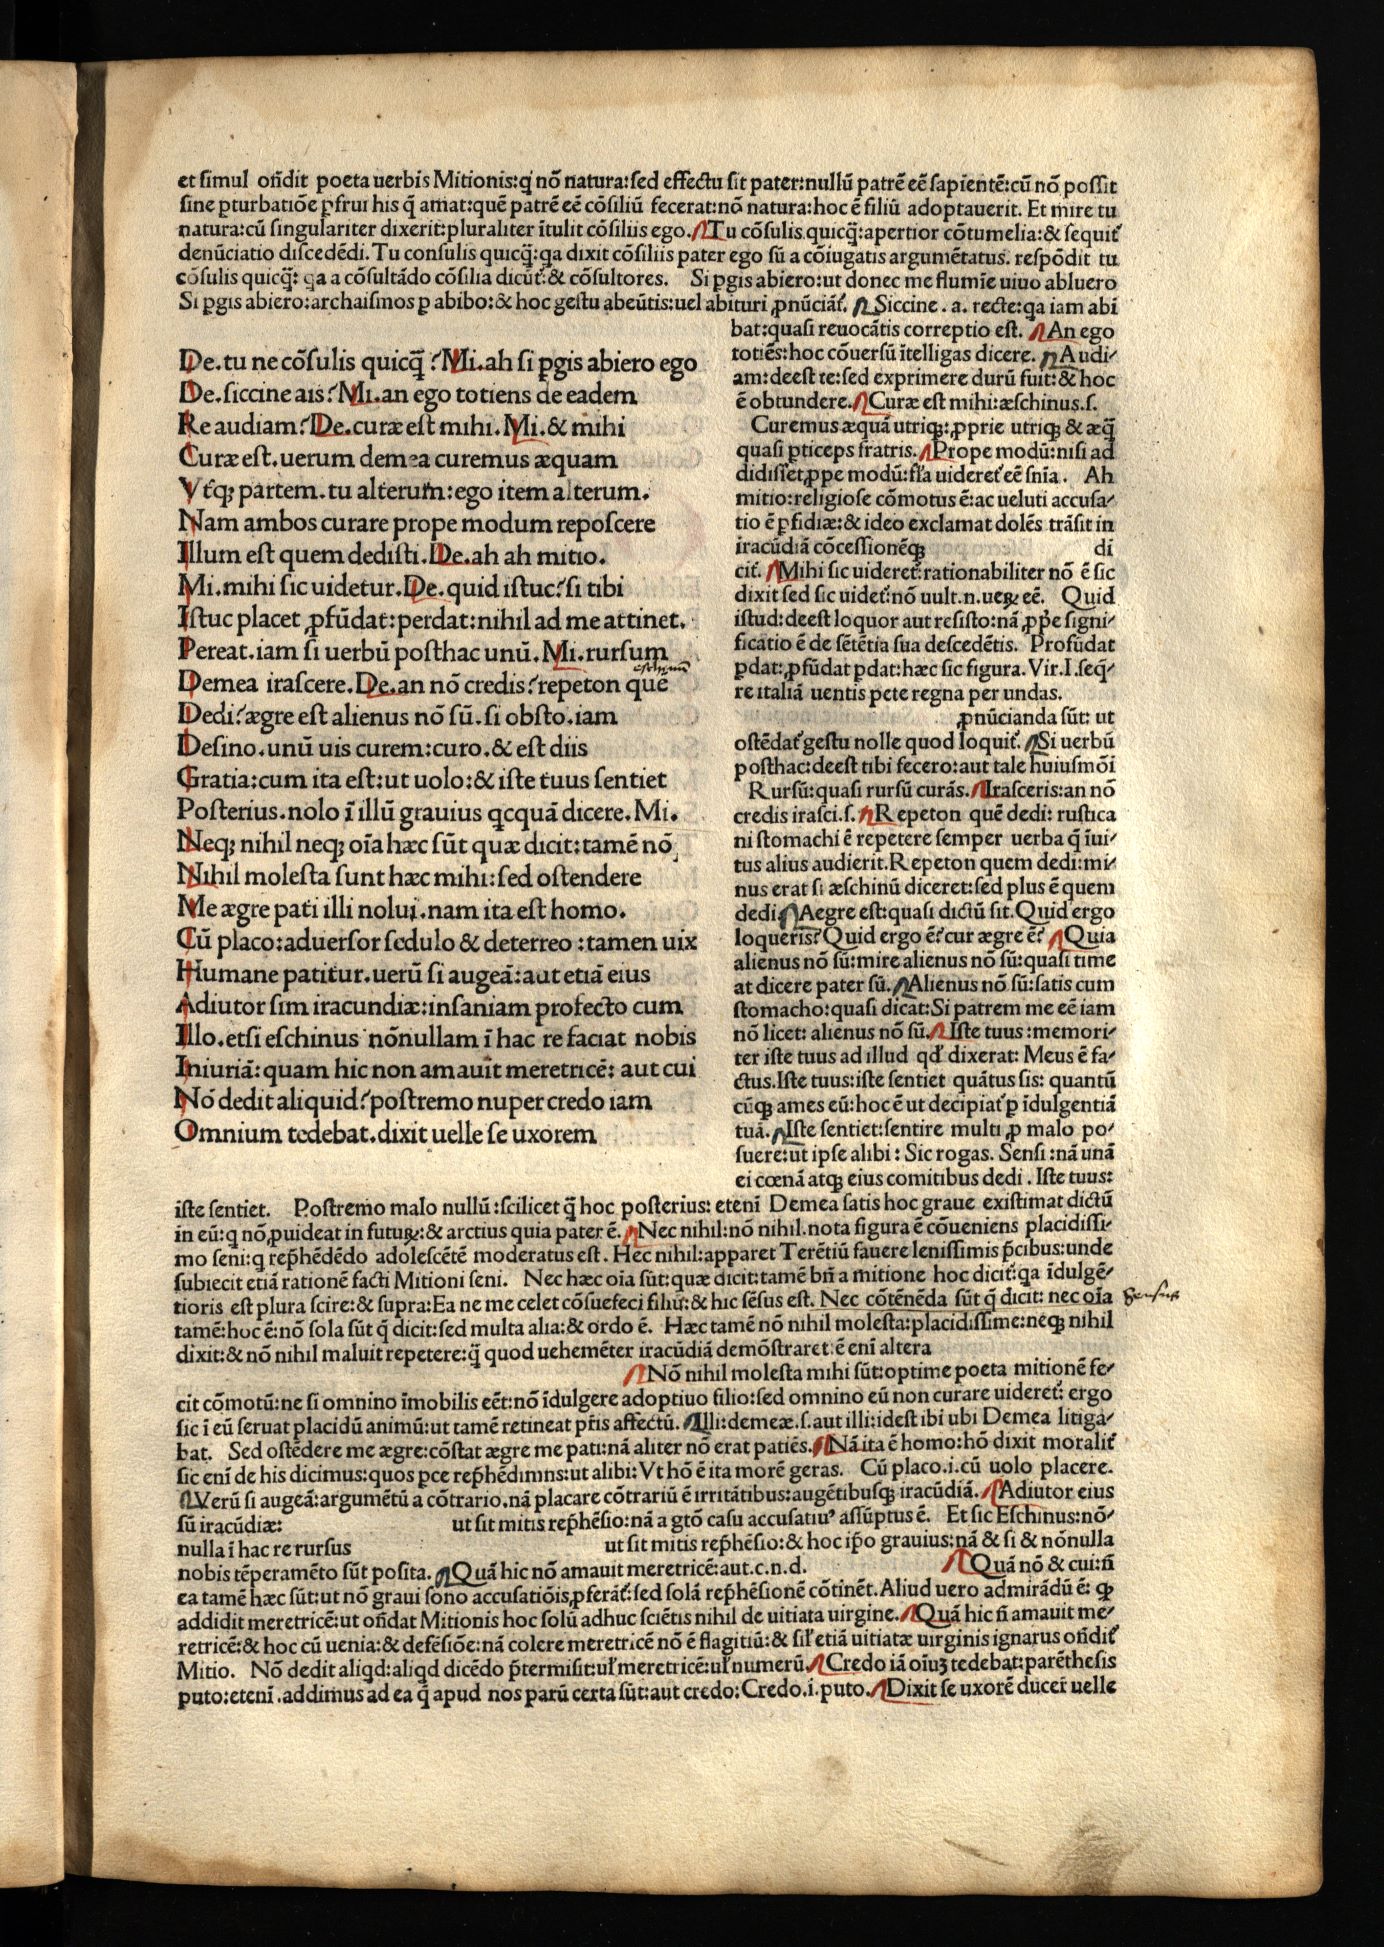 et simul on̄dit poeta uerbis Mitionis:q nō natura:sed effectu sit pater:nullū patrē eē sapientē:cū nō possit
sine ꝑturbatiōe ꝑfrui his q̄ amat:quē patrē eē cōsiliū fecerat:nō natura:hoc ē filiū adoptauerit. Et mire tu
natura:cū singulariter dixerit:pluraliter ītulit cōsiliis ego. Tu cōsulis quicq̄:apertior cōtumelia:& sequit̄
denūciatio discedēdi. Tu consulis quicq̄:qa dixit cōsiliis pater ego sū a cōiugatis argumētatus. respōdit tu
cōsulis quicq̄: qa a cōsultādo cōsilia dicūt̄:& cōsultores. Si ꝑgis abiero:ut donec me flumīe uiuo abluero
Si ꝑgis abiero:archaismos ꝑ abibo:& hoc gestu abeūtis:uel abituri ꝓnūciāt̄. Siccine.a. recte:qa iam abi
De.tu ne cōsulis quicq̄? Mi.ah si ꝑgis abiero ego
De.siccine ais? Mi.an ego totiens de eadem
Re audiam? De.curæ est mihi. Mi.& mihi
Curæ est.uerum demea curemus æquam
Vtꝗ; partem.tu alterum:ego item alterum.
Nam ambos curare prope modum reposcere
Illum est quem dedisti.De.ah ah mitio.
Mi.mihi sic uidetur.De.quid istuc? si tibi
Istuc placet ꝓfūdat:perdat:nihil ad me attinet.
Pereat.iam si uerbū posthac unū.Mi.rursum
Demea irascere.De.an nō credis? repeton quē
Dedi? ægre est alienus nō sū.si obsto.iam
Desino.unū uis curem:curo.& est diis
Gratia:cum ita est:ut uolo:& iste tuus sentiet
Posterius.nolo ī illū grauius qcquā dicere.Mi.
Neꝗ; nihil neꝗ; oīa hæc sūt quæ dicit:tamē nō
Nihil molesta sunt hæc mihi:sed ostendere
Me ægre pati illi nolui.nam ita est homo.
Cū placo:aduersor sedulo & deterreo:tamen uix
Humane patitur.uerū si augeā:aut etiā eius
Adiutor sim iracundiæ:insaniam profecto cum
Illo.etsi eschinus nōnullam ī hac re faciat nobis
Iniuriā:quam hic non amauit meretricē: aut cui
Nō dedit aliquid? postremo nuper credo iam
Omnium tedebat.dixit uelle se uxorem
bat:quasi reuocātis correptio est. An ego
totiēs:hoc cōuersū ītelligas dicere. Audi-
am:deest te:sed exprimere durū fuit:& hoc
ē obtundere. Curæ est mihi:æschinus.s.
Curemus æquā utriꝗ;:ꝓprie utriꝗ; & æq̄
quasi ꝑticeps fratris. Prope modū:nisi ad
didisset ꝓpe modū:fl̄a uideret̄ eē snīa. Ah
mitio:religiose cōmotus ē:ac ueluti accusa-
tio ē ꝑfidiæ:& ideo exclamat dolēs trāsit in
iracūdiā cōcessionēꝗ; di
cit̄. Mihi sic uideret̄:rationabiliter nō ē sic
dixit sed sic uidet̄:nō uult.n.ueꝝ eē. Quid
istud:deest loquor aut resisto:nā ꝓpe signi-
ficatio ē de sētētia sua descedētis. Profūdat
ꝑdat:ꝓfūdat ꝑdat:hæc sic figura. Vir.I.seq̄-
re italiā uentis pete regna per undas.
ꝓnūcianda sūt: ut
ostēdat̄ gestu nolle quod loquit̄. Si uerbū
posthac:deest tibi fecero:aut tale huiusmōi
Rursū:quasi rursū curās. Irasceris:an nō
credis irasci.s. Repeton quē dedi: rustica
ni stomachi ē repetere semper uerba q̄ īui-
tus alius audierit.Repeton quem dedi:mi-
nus erat si æschinū diceret:sed plus ē quem
dedi. Aegre est:quasi dictū sit.Quid ergo
loqueris? Quid ergo ē? cur ægre ē? Quia
alienus nō sū:mire alienus nō sū:quasi time
at dicere pater sū. Alienus nō sū:satis cum
stomacho:quasi dicat:Si patrem me eē iam
nō licet: alienus nō sū. Iste tuus:memori-
ter iste tuus ad illud qd̄ dixerat: Meus ē fa-
ctus.Iste tuus:iste sentiet quātus sis: quantū
cūꝗ; ames eū:hoc ē ut decipiat̄ ꝑ īdulgentiā
tuā. Iste sentiet:sentire multi ꝓ malo po-
suere:ut ipse alibi: Sic rogas. Sensi:nā unā
ei cœnā atꝗ; eius comitibus dedi. Iste tuus:
iste sentiet. Postremo malo nullū:scilicet q̄ hoc posterius: etenī Demea satis hoc graue existimat dictū
in eū:q nō ꝓuideat in futuꝝ:& arctius quia pater ē. Nec nihil:nō nihil.nota figura ē cōueniens placidissi-
mo seni:q rep̄hēdēdo adolescētē moderatus est. Hec nihil:apparet Terētiū fauere lenissimis p̄cibus:unde
subiecit etiā rationē facti Mitioni seni. Nec hæc oīa sūt:quæ dicit:tamē bn̄ a mitione hoc dicit̄:qa īdulgē-
tioris est plura scire:& supra:Ea ne me celet cōsuefeci filiū:& hic sēsus est. Nec cōtēnēda sūt q̄ dicit: nec oīa
tamē:hoc ē:nō sola sūt q̄ dicit:sed multa alia:& ordo ē. Hæc tamē nō nihil molesta:placidissime:neꝗ; nihil
dixit:& nō nihil maluit repetere:q̄ quod uehemēter iracūdiā demōstraret:ē enī altera
Nō nihil molesta mihi sūt:optime poeta mitionē fe-
cit cōmotū:ne si omnino īmobilis eēt:nō īdulgere adoptiuo filio:sed omnino eū non curare uideret̄: ergo
sic ī eū seruat placidū animū:ut tamē retineat pr̄is affectū. Illi:demeæ.s.aut illi:idest ibi ubi Demea litiga-
bat. Sed ostēdere me ægre:cōstat ægre me pati:nā aliter nō erat patiēs. Nā ita ē homo:hō dixit moralit̄
sic enī de his dicimus:quos ꝑce rep̄hēdimns:ut alibi: Vt hō ē ita morē geras. Cū placo.i.cū uolo placere.
Verū si augeā:argumētū a cōtrario.nā placare cōtrariū ē irritātibus:augētibusꝗ; iracūdiā. Adiutor eius
sū iracūdiæ: ut sit mitis rep̄hēsio:nā a gtō casu accusatiu' assūptus ē. Et sic Eschinus:nō-
nulla ī hac re rursus ut sit mitis rep̄hēsio:& hoc ip̄o grauius:nā & si & nōnulla
nobis tēperamēto sūt posita. Quā hic nō amauit meretricē:aut.c.n.d. Quā nō & cui:sī
ea tamē hæc sūt:ut nō graui sono accusatiōis ꝓferāt̄:sed solā rep̄hēsionē cōtinēt. Aliud uero admirādū ē: ꝙ
addidit meretricē:ut on̄dat Mitionis hoc solū adhuc sciētis nihil de uitiata uirgine. Quā hic n̄ amauit me-
retricē:& hoc cū uenia:& defēsiōe:nā colere meretricē nō ē flagitiū:& sil̄ etiā uitiatæ uirginis ignarus on̄dit̄
Mitio. Nō dedit aliqd:aliqd dicēdo p̄termisit:ul̄ meretricē:ul̄ numerū Credo iā oīuꝫ tedebat:parēthesis
puto:etenī.addimus ad ea q̄ apud nos parū certa sūt:aut credo:Credo.i.puto. Dixit se uxorē ducer̄ uelle